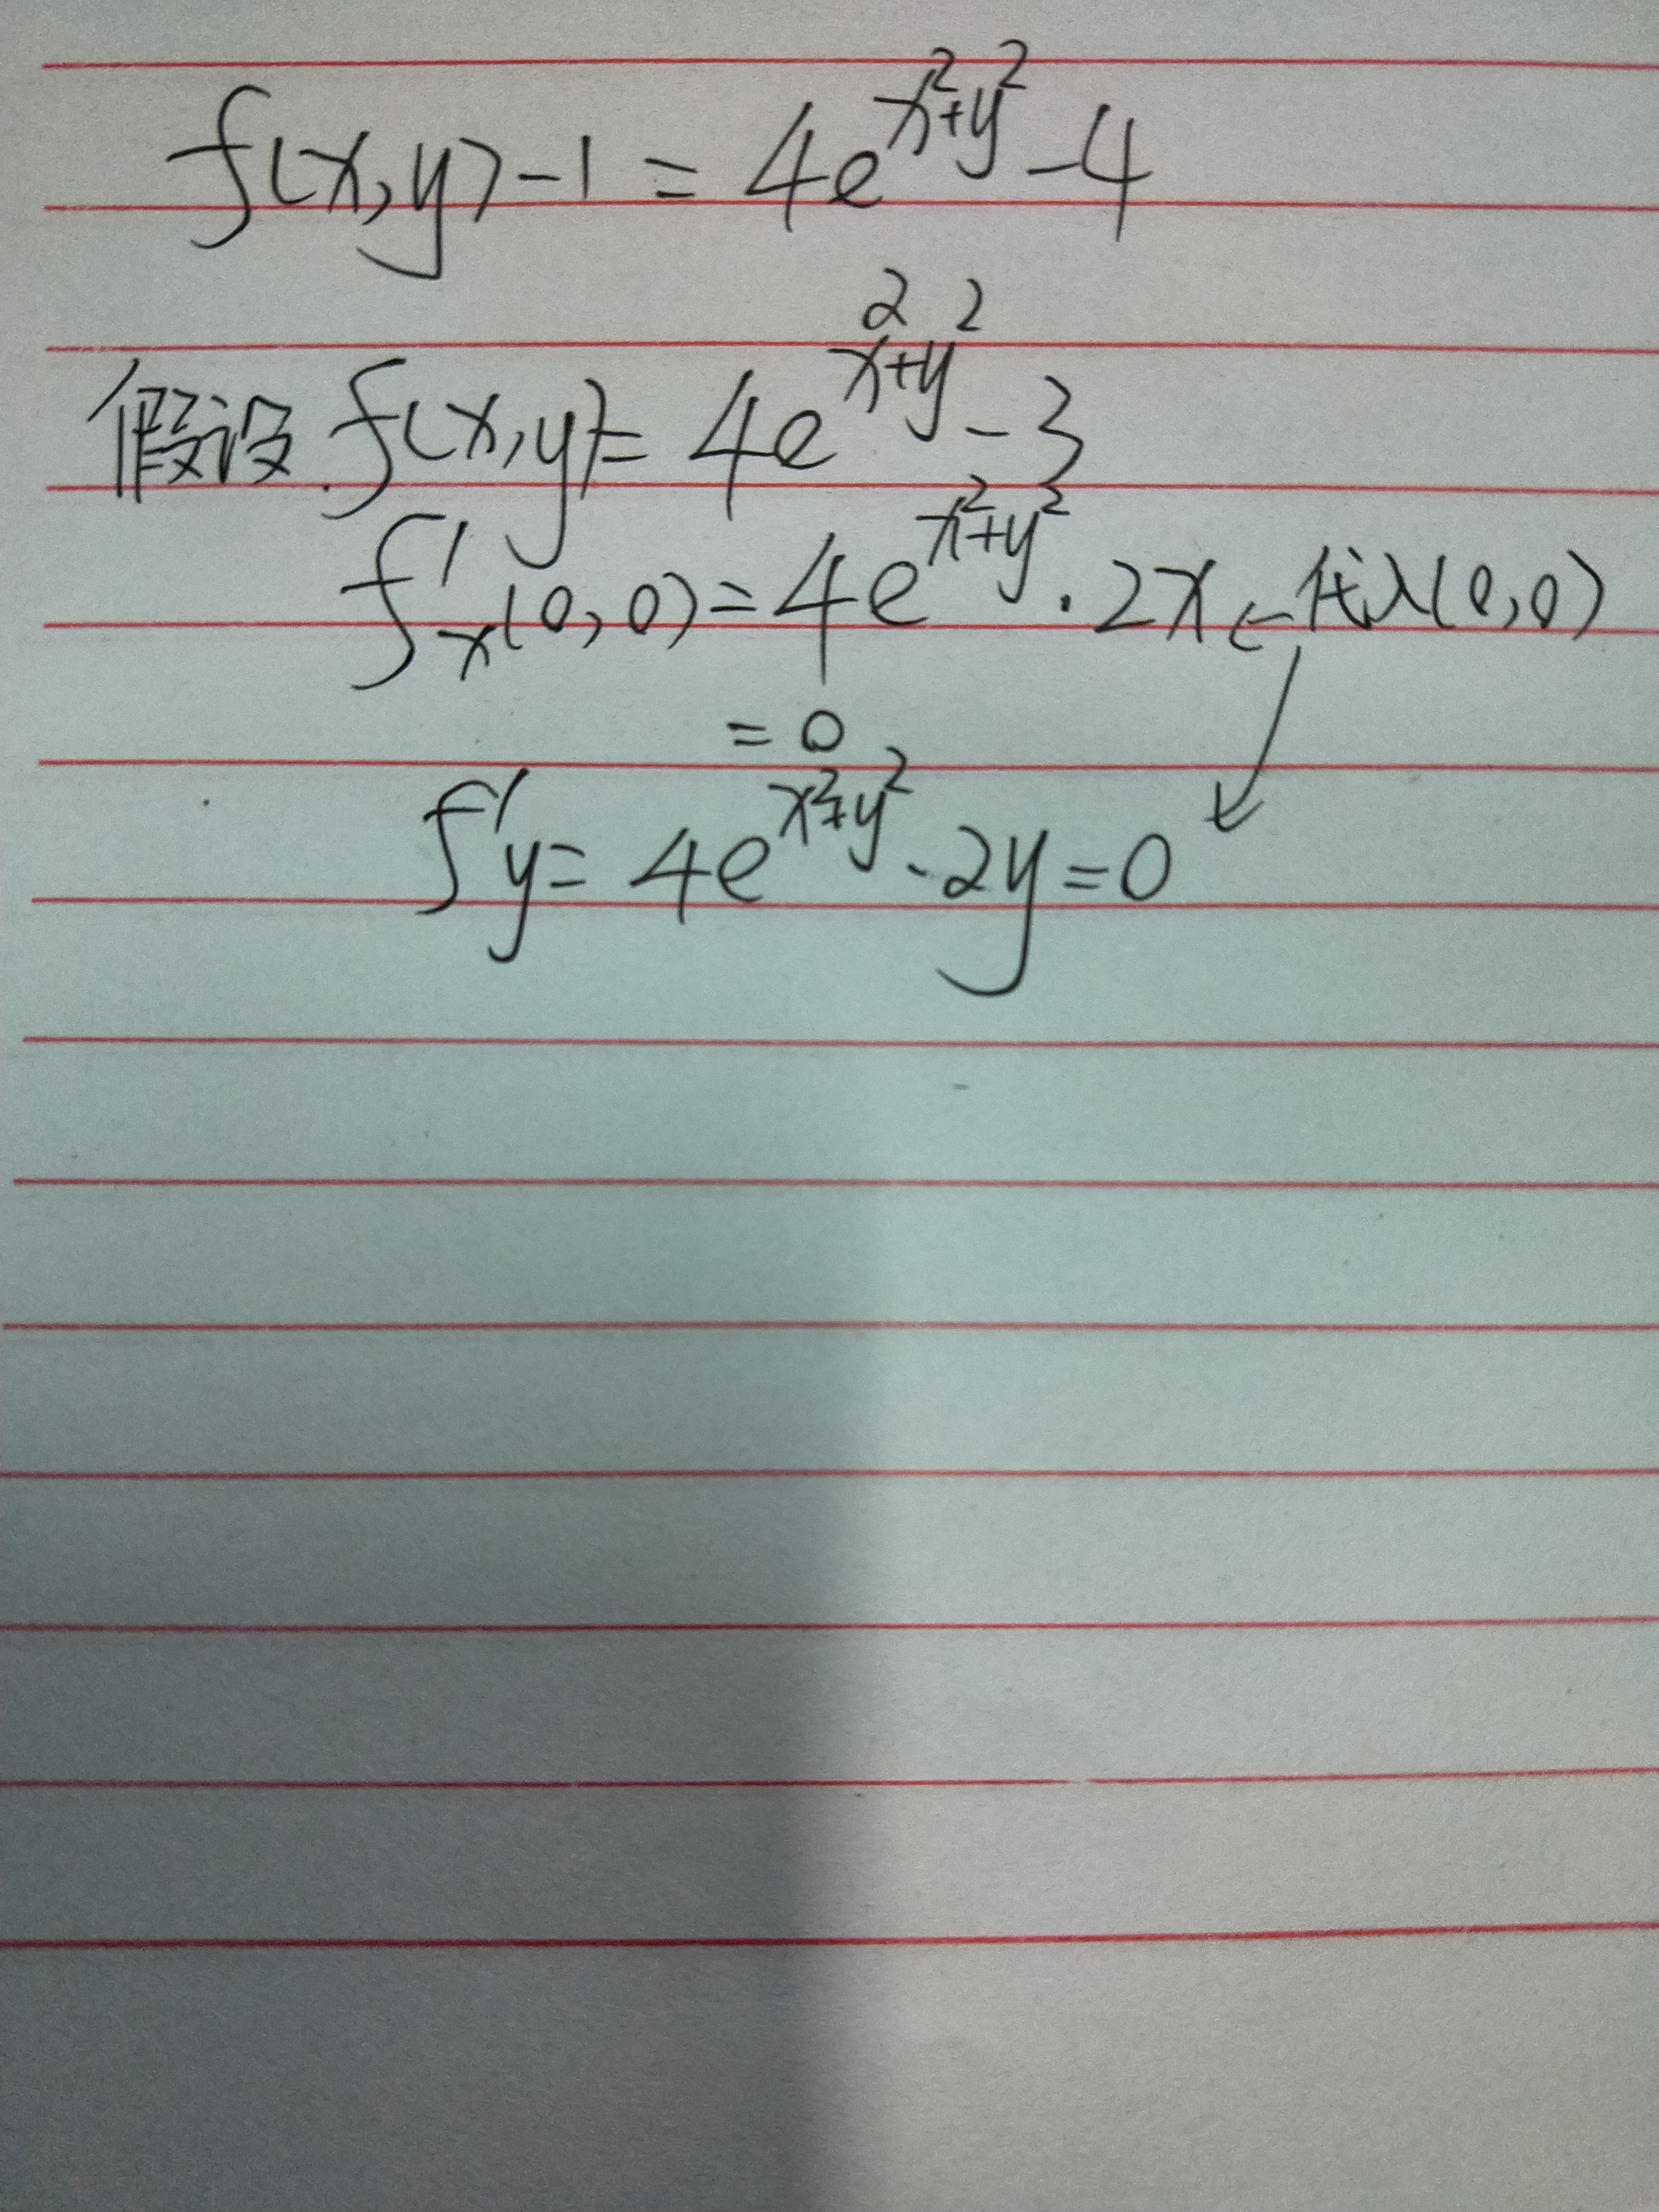 f(x,y)-1=4e^{x²+y²}-4
假设.f(x,y)=4e^{x²+y²}-3
f'ₓ(0,0)=4e^{x²+y²}·2x←代入(0,0)
=0
f'y=4e^{x²+y²}·2y=0